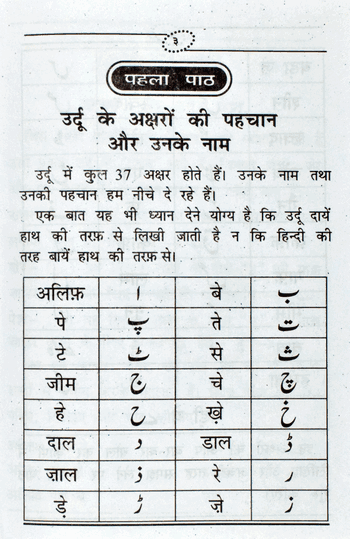 ३
पहला पाठ
उर्दू के अक्षरों की पहचान
और उनके नाम
उर्दू में कुल 37 अक्षर होते हैं। उनके नाम तथा
उनकी पहचान हम नीचे दे रहे हैं।
एक बात यह भी ध्यान देने योग्य है कि उर्दू दायें
हाथ की तरफ़ से लिखी जाती है न कि हिन्दी की
तरह बायें हाथ की तरफ़ से।
अलिफ़ ا बे ب
पे پ ते ت
टे ٹ से ث
जीम ج चे چ
हे ح ख़े خ
दाल د डाल ڈ
ज़ाल ذ रे ر
ड़े ڑ जे ز